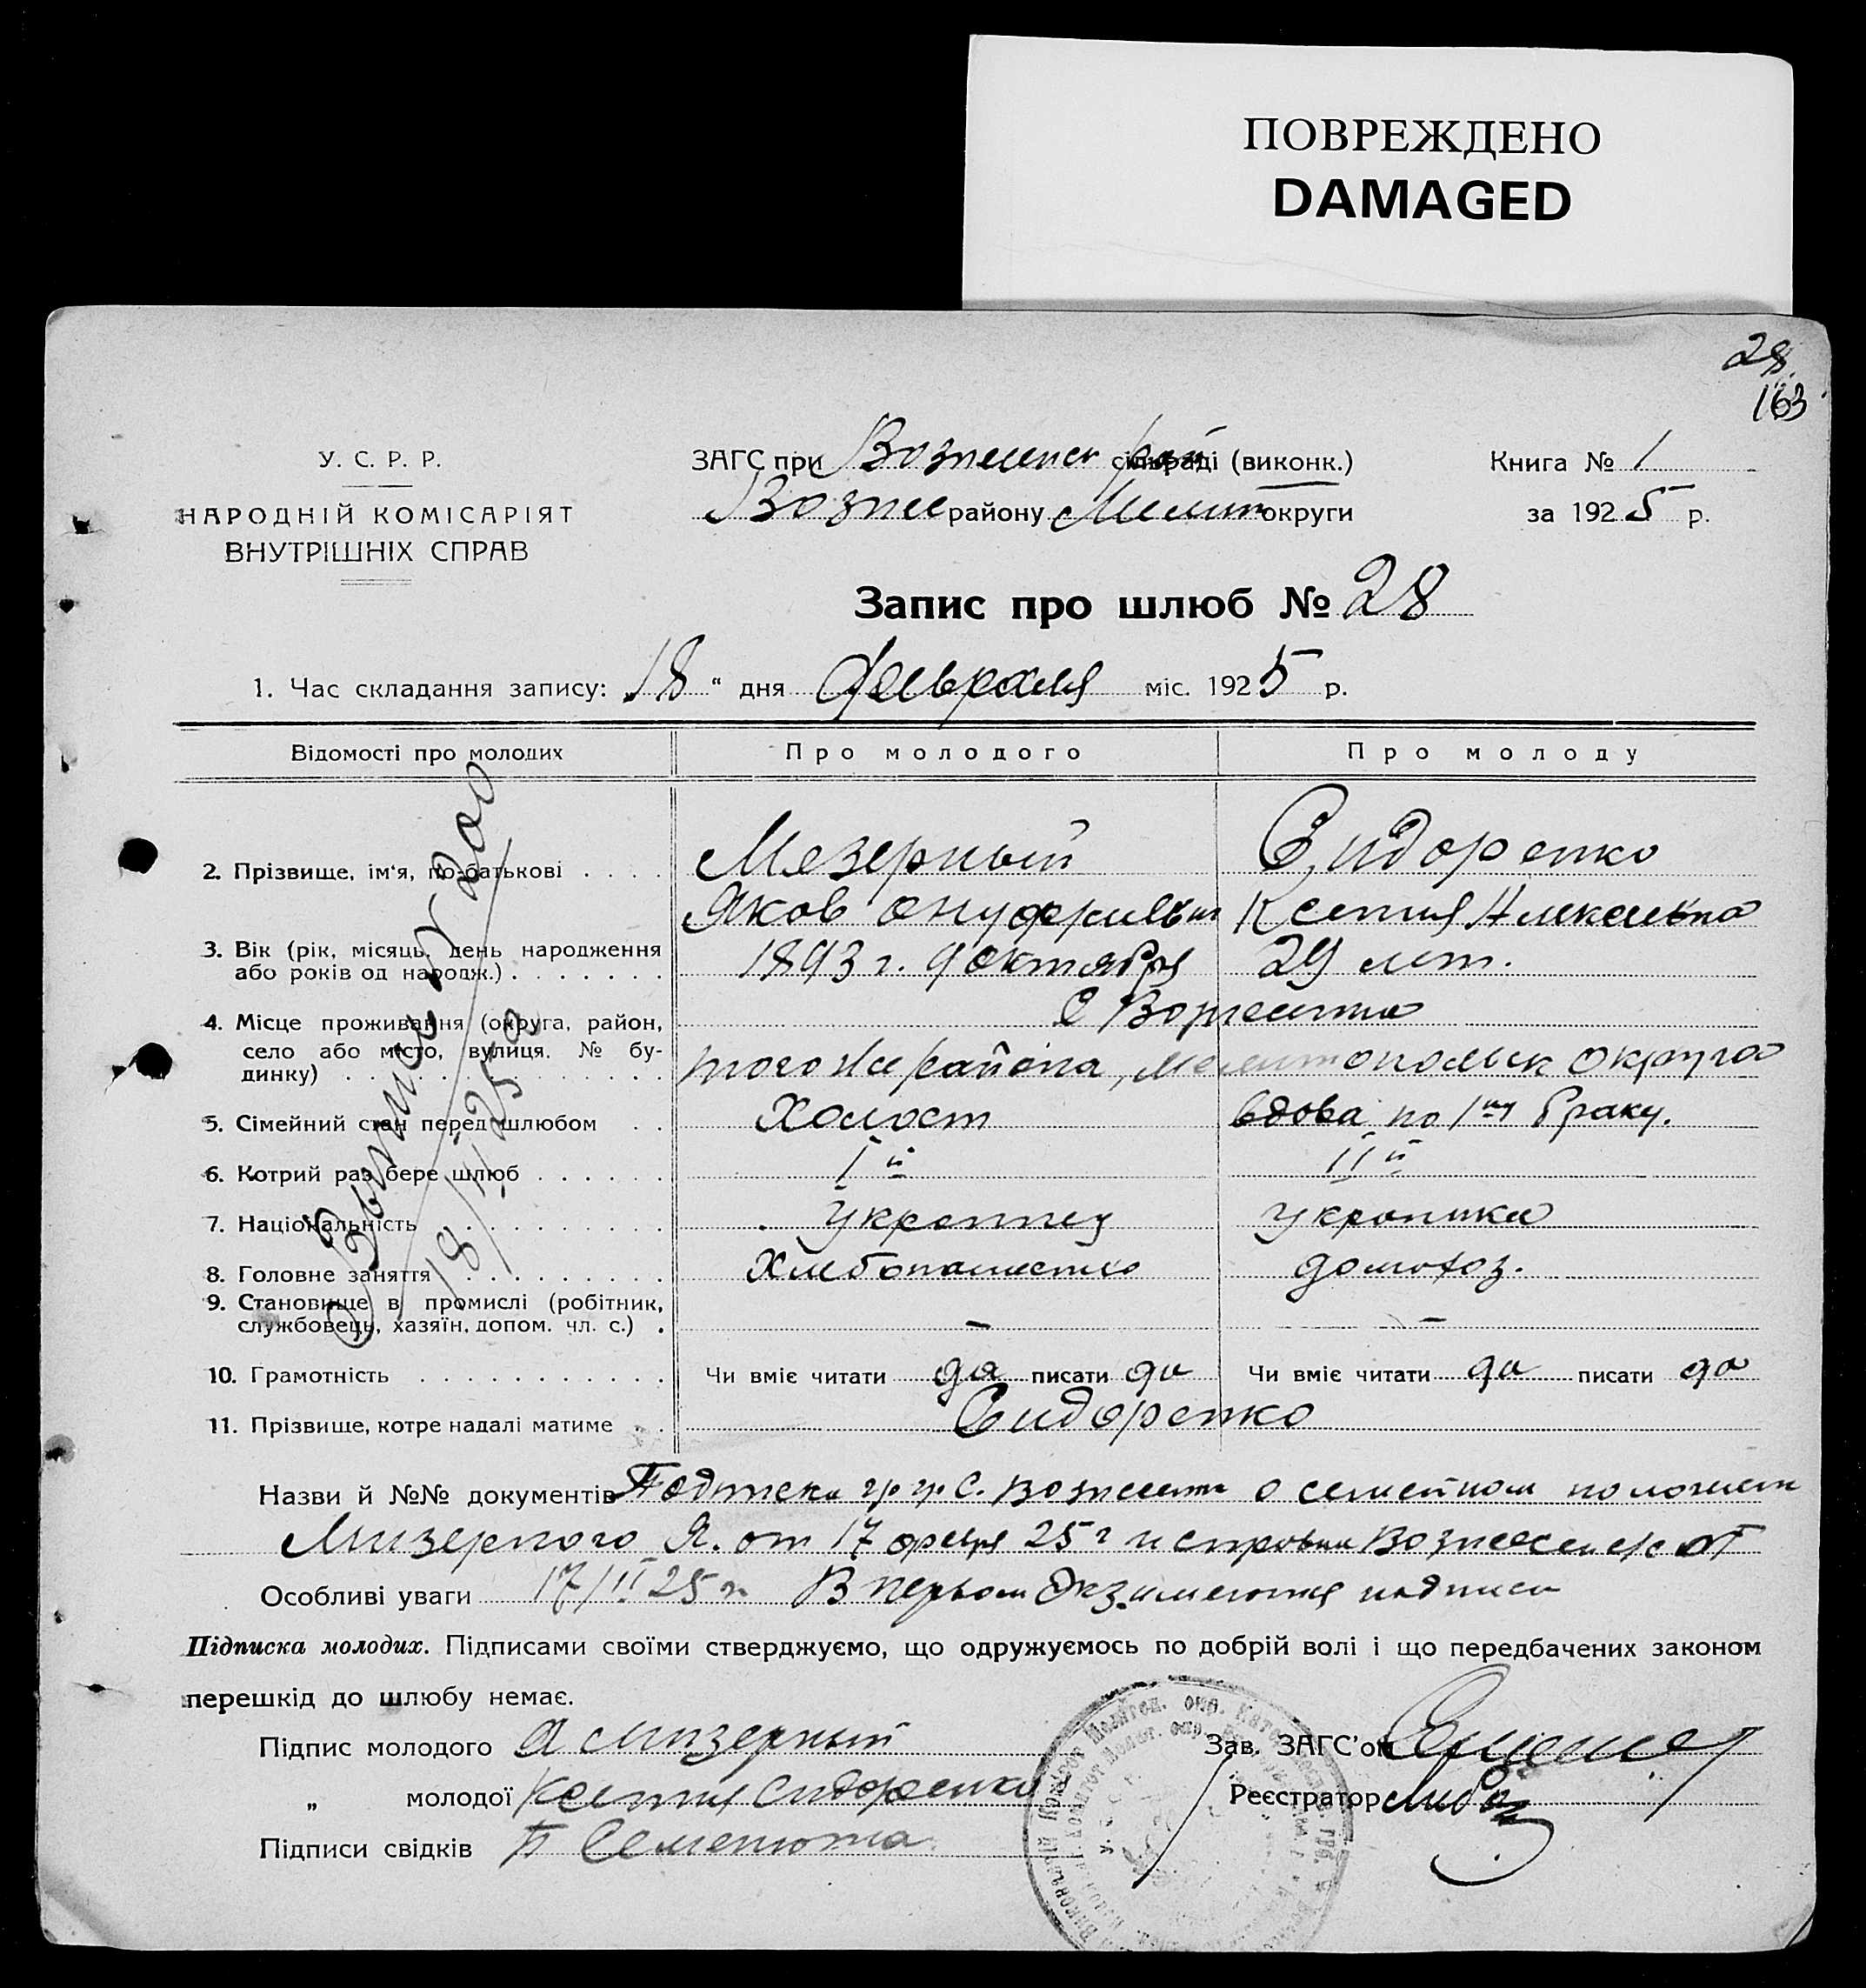 ПОВРЕЖДЕНО
DAMAGED
28.
163
У. С. Р. Р.
НАРОДНІЙ КОМІСАРІЯТ
ВНУТРІШНІХ СПРАВ
ЗАГС при Вознесенск рай сільраді (виконк.)
Вознес району Мелит округи
Книга № 1
за 1925 р.
Запис про шлюб № 28
1. Час складання запису: 18 “ дня февраля міс. 1925 р.
Відомості про молодих
Про молодого
Про молоду
2. Прізвище, ім'я, по-батькові . . . .
Мезерный Сидоренко
Яков Онуфриевич Ксения Алексеевна
3. Вік (рік, місяць, день народження
або років од народж.) . . . . . . .
1893 г. 9 октября 29 лет.
4. Місце проживання (округа, район,
село або місто, вулиця. № бу-
динку) . . . . . . . . . . . . . .
С Вознесенка
того же района, Мелитопольск округа
5. Сімейний стан перед шлюбом . .
Холост вдова по 1му браку.
6. Котрий раз бере шлюб . . . . . .
Iй IIй
7. Національність . . . . . . . . .
украинец украинка
8. Головне заняття . . . . . . . . .
Хлебопашество домохоз.
9. Становище в промислі (робітник,
службовець, хазяїн, допом. чл. с.) .
– –
10. Грамотність . . . . . . . . . . .
Чи вміє читати да писати да Чи вміє читати да писати да
11. Прізвище, котре надалі матиме .
Сидоренко
18/II 25 г
Назви й №№ документів Подписка гр гр С. Вознесенк о семейном положен
Мизерного Я. от 17 февр 25 г и справка Вознесенск с/с от
Особливі уваги 17/II 25 г В первом экз. имеются подписи
Підписка молодих. Підписами своїми стверджуємо, що одружуємось по добрій волі і що передбачених законом
перешкід до шлюбу немає.
Підпис молодого Я Мизерный
„ молодої Ксения Сидоренко
Підписи свідків П Семенюта
Зав. ЗАГС'ом
Реєстратор